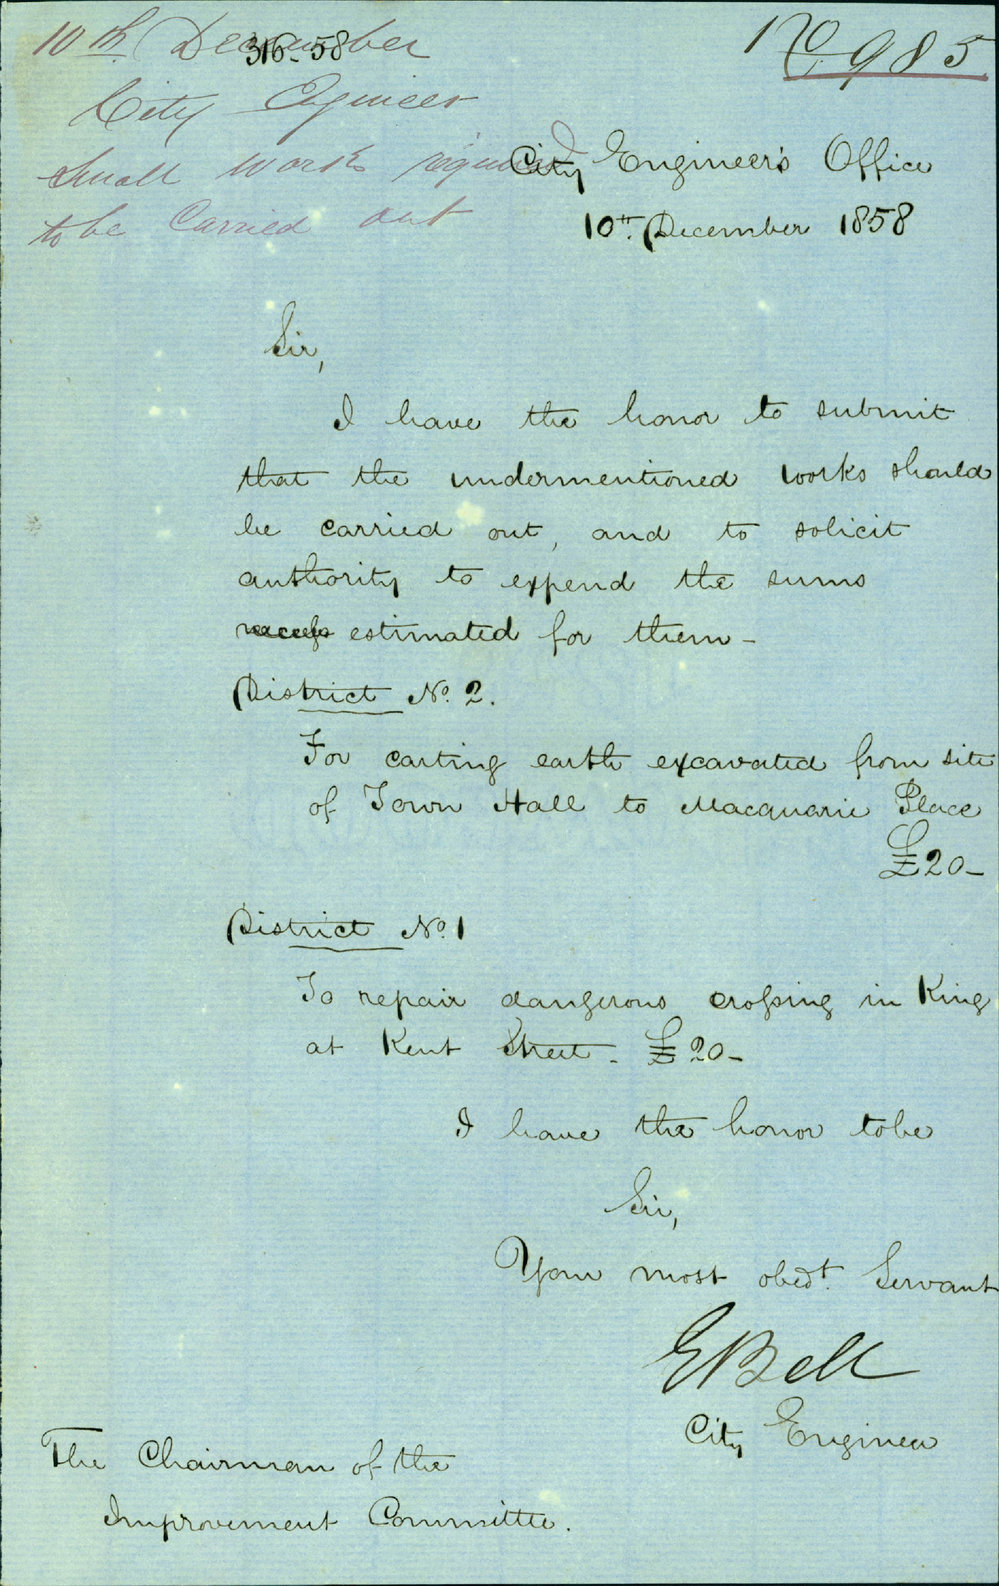 10th. December
316-58
No 985
City Engineer
Small Works required
to be Carried out
City Engineer's Office
10th. December 1858
Sir,
I have the honor to submit
that the undermentioned works should
be carried out, and to solicit
authority to expend the sums
estimated for them -
District No. 2.
For carting earth excavated from site
of Town Hall to Macquarie Place
£20-
District No. 1
To repair dangerous crossing in King
at Kent Street - £20-
I have the honor to be
Sir,
Your most obedt. Servant
E Bell
City Engineer
The Chairman of the
Improvement Committee.